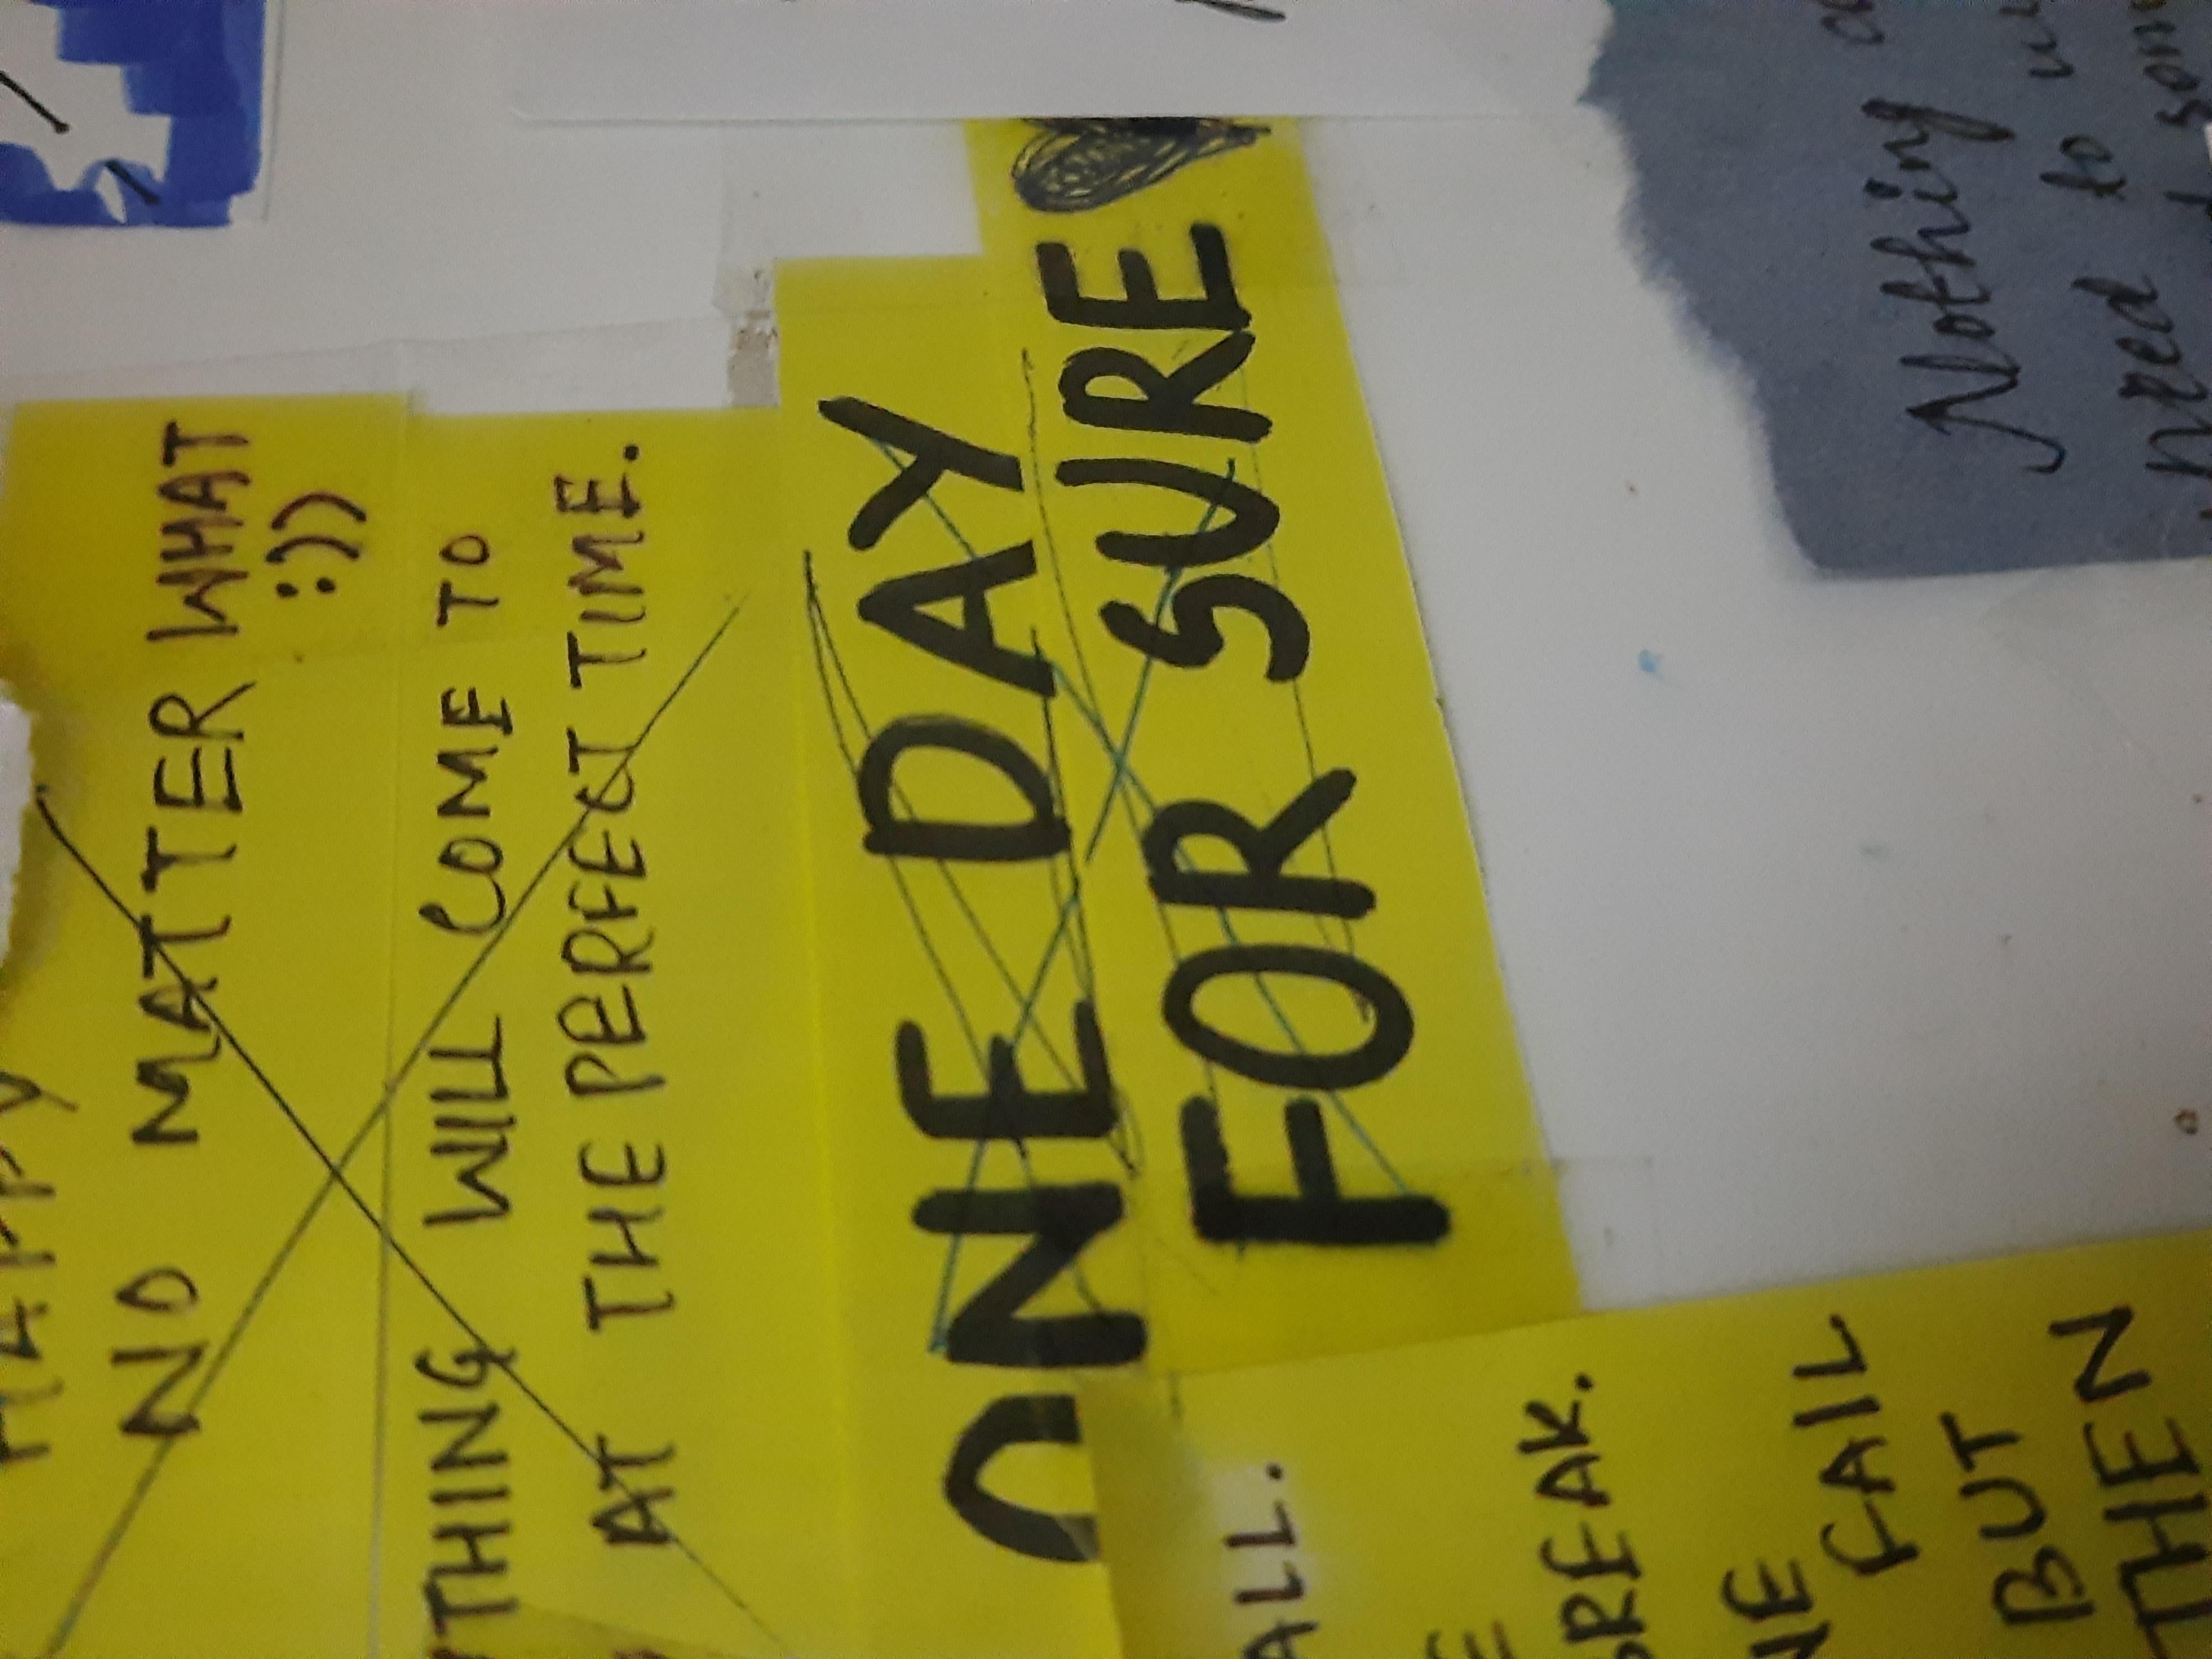 HAPPY
NO MATTER WHAT
:))
THING WILL COME TO
AT THE PERFECT TIME.
ONE DAY
FOR SURE
ALL.
BREAK.
FAIL
BUT
THEN
Nothing
need to